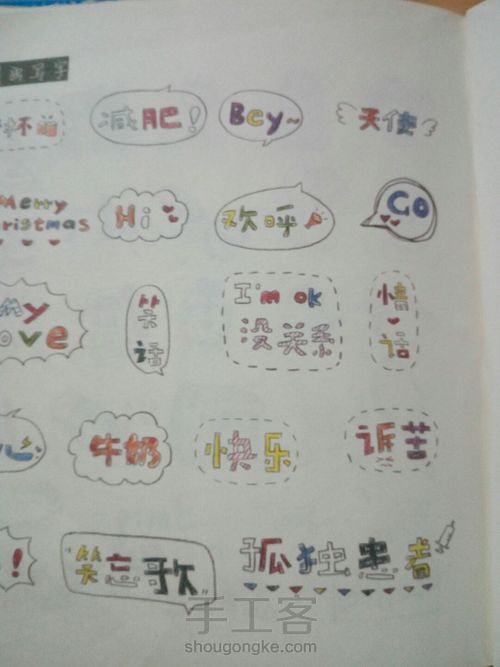 减肥!
Bcy~
天使
Merry
christmas
Hi
欢呼
Go
my
love
笑话
I'm ok
没关系
情话
牛奶
快乐
诉苦
!
笑忘歌
孤独患者
手工客
shougongke.com